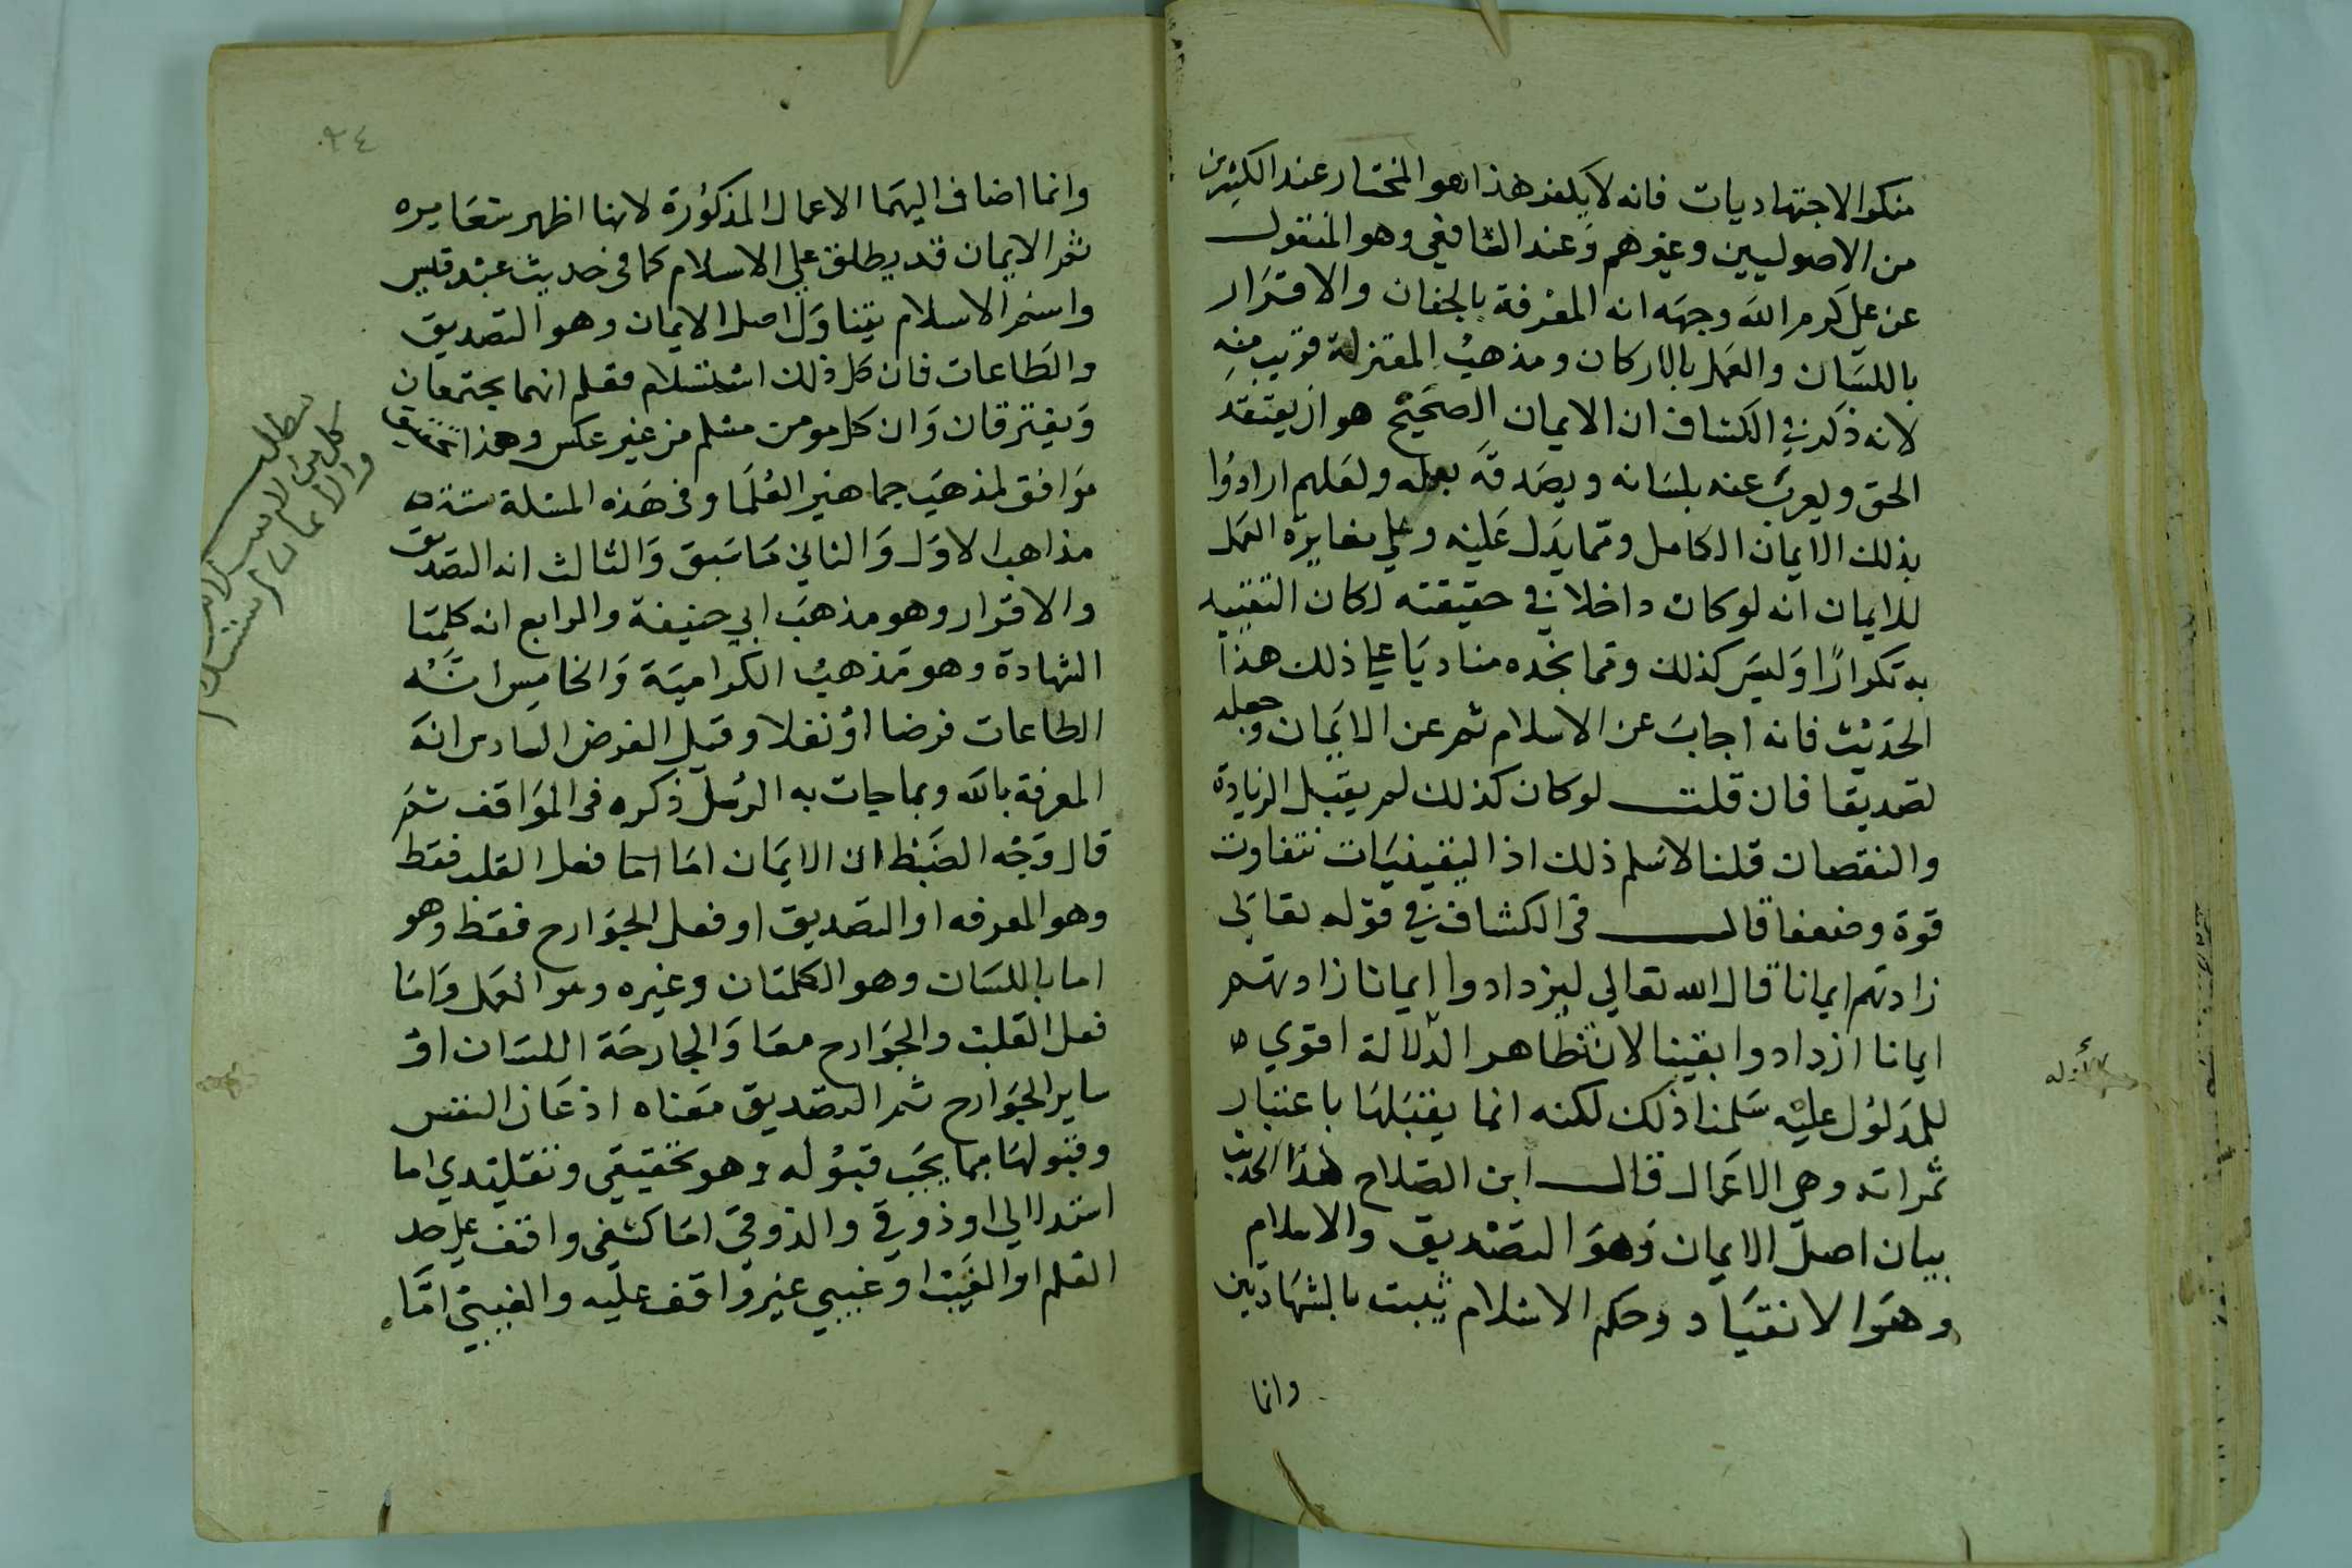 منكر الاجتهاديات فانه لا يكفر هذا هو المختار عند الكثيرين
من الاصوليين وغيرهم وعند الشافعي وهو المنقول
عن علي كرم الله وجهه انه المعرفة بالجنان والاقرار
باللسان والعمل بالاركان ومذهب المعتزلة قريب منه
لانه ذكر في الكشاف ان الايمان الصحيح هو ان يعتقد
الحق ويعرب عنه بلسانه ويصدقه بعمله ولعلهم ارادوا
بذلك الايمان الكامل ومما يدل عليه وعلي مغايرة العمل
للايمان انه لو كان داخلا في حقيقته لكان التقييد
به تكرارًا وليس كذلك ومما نجده مناديا علي ذلك هذا
الحديث فانه اجاب عن الاسلام ثم عن الايمان وجعله
تصديقا فان قلت لو كان كذلك لم يقبل الزيادة
والنقصان قلنا لا نسلم ذلك اذ اليقينيات تتفاوت
قوة وضعفا قال في الكشاف في قوله تعالي
زادتهم ايمانا قال الله تعالي ليزدادوا ايمانا زادتهم
ايمانا ازدادوا يقينا لان تظاهر الدلالة اقوي
للمدلول عليه سلمنا ذلك لكنه انما يقبلها باعتبار
ثمراته وهي الاعمال قال ابن الصلاح هذا الحديث
بيان اصل الايمان وهو التصديق والاسلام
وهو الانقياد وحكم الاسلام يثبت بالشهادتين
وانما
٩٤
وانما اضاف اليهما الاعمال المذكورة لانها اظهر شعايره
ثم الايمان قد يطلق علي الاسلام كما في حديث عبد قيس
واسم الاسلام يتناول اصل الايمان وهو التصديق
والطاعات فان كل ذلك استسلام فعلم انهما يجتمعان
ويفترقان وان كل مومن مسلم من غير عكس وهذا تحقيق
موافق لمذهب جماهير العلما وفي هذه المسئلة ستة
مذاهب الاول والثاني ما سبق والثالث انه التصديق
والاقرار وهو مذهب ابي حنيفة والرابع انه كلمتا
الشهادة وهو مذهب الكرامية والخامس انه
الطاعات فرضا او نفلا وقيل الفرض السادس انه
المعرفة بالله وبما جات به الرسل ذكره في المواقف ثم
قال وجه الضبط ان الايمان اما اما فعل القلب فقط
وهو المعرفه او التصديق او فعل الجوارح فقط وهو
اما باللسان وهو الكلمتان وغيره وهو العمل واما
فعل القلب والجوارح معا والجارحة اللسان او
ساير الجوارح ثم التصديق معناه اذعان النفس
وقبولها بما يجب قبوله وهو تحقيقي وتقليدي اما
استدلالي او ذوقي والذوقي اما كشفي واقف علي حد
العلم او الغيب او غيبي غير واقف عليه والغيبي اما
مطلب
والايمان